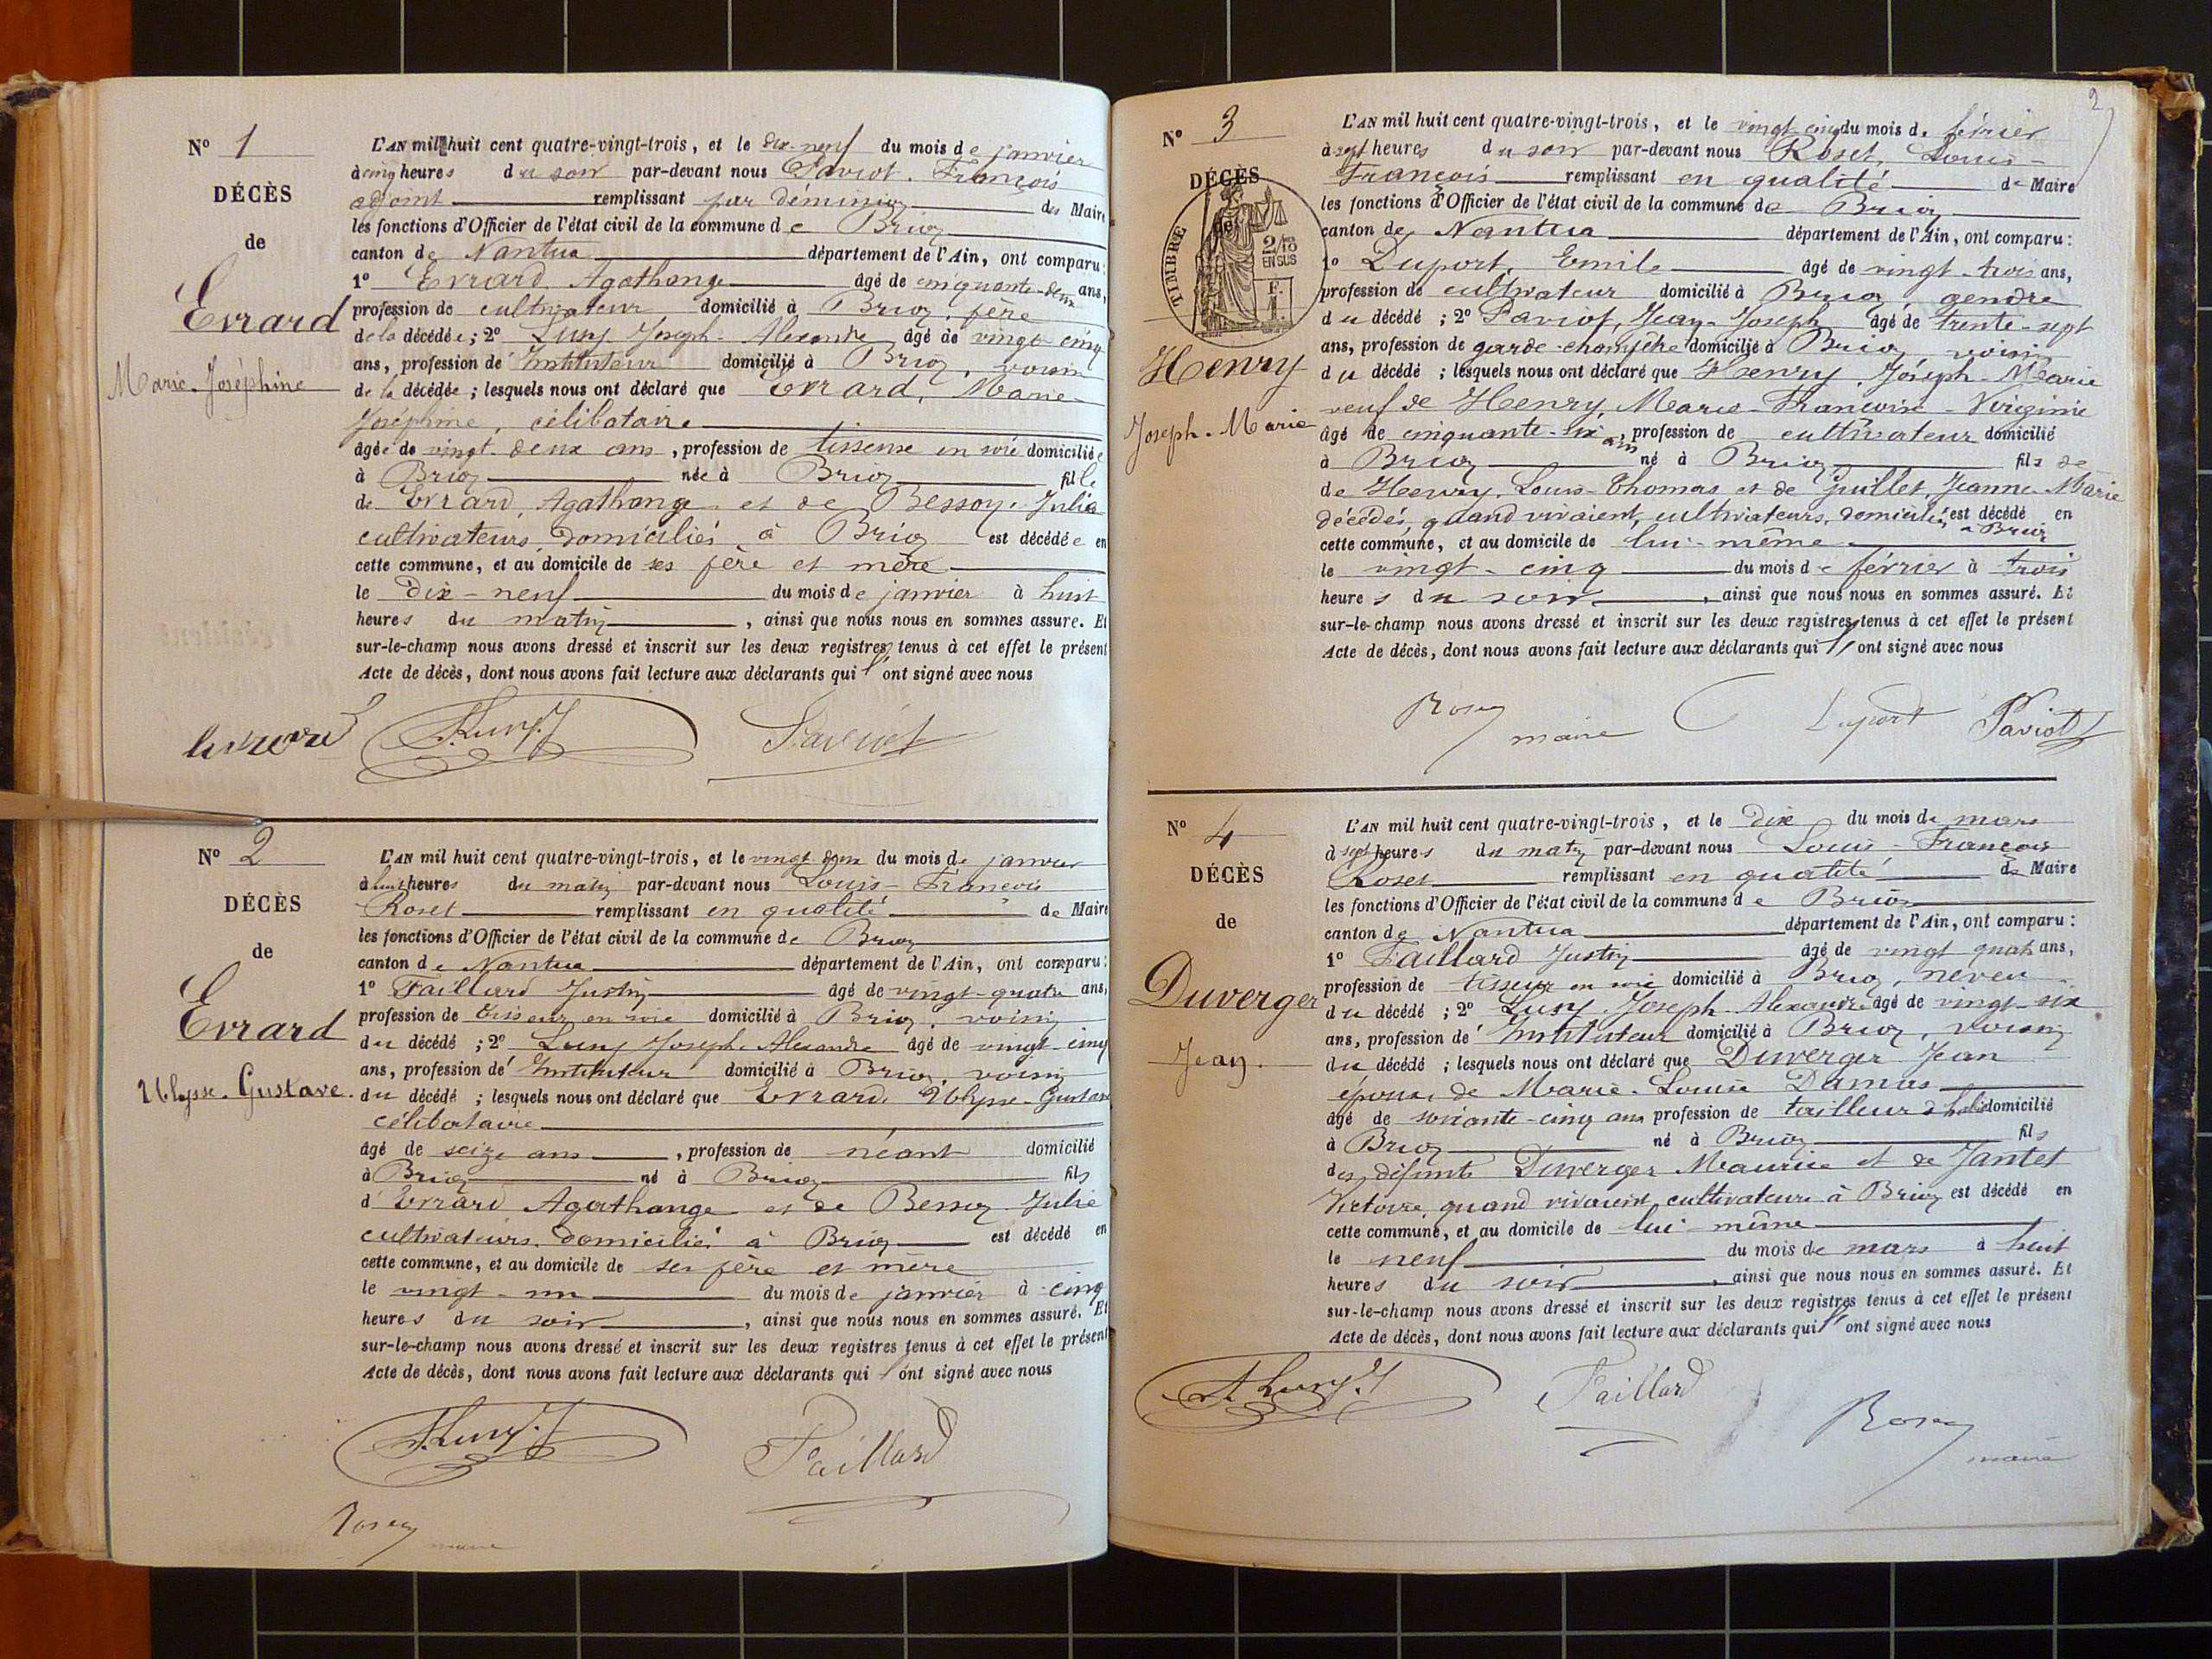 N° 1
DÉCÈS
de
Evrard
Marie-Joséphine
L'AN mil huit cent quatre-vingt-trois, et le dix-neuf du mois de janvier
à cinq heures du soir par-devant nous Paviot, François
adjoint remplissant par de Maire
les fonctions d'Officier de l'état civil de la commune de Brion
canton de Nantua département de l'Ain, ont comparu:
1° Evrard Agathange âgé de cinquante-deux ans,
profession de cultivateur domicilié à Brion, père
de la décédée; 2° Luny Joseph-Alexandre âgé de vingt-cinq
ans, profession de Instituteur domicilié à Brion, voisin
de la décédée; lesquels nous ont déclaré que Evrard, Marie-
Joséphine, célibataire
âgée de vingt-deux ans, profession de tisseuse en soie domiciliée
à Brion née à Brion fille
de Evrard, Agathange et de Besson, Julie
cultivateurs, domiciliés à Brion est décédée en
cette commune, et au domicile de ses père et mère
le dix-neuf du mois de janvier à huit
heures du matin, ainsi que nous nous en sommes assuré. Et
sur-le-champ nous avons dressé et inscrit sur les deux registres tenus à cet effet le présent
Acte de décès, dont nous avons fait lecture aux déclarants qui l'ont signé avec nous
A. Luny. J Paviot
N° 2
DÉCÈS
de
Evrard
Ulysse-Gustave.
L'AN mil huit cent quatre-vingt-trois, et le vingt-deux du mois de janvier
à huit heures du matin par-devant nous Louis-François
Roset remplissant en qualité de Maire
les fonctions d'Officier de l'état civil de la commune de Brion
canton de Nantua département de l'Ain, ont comparu:
1° Faillard Justin âgé de vingt-quatre ans,
profession de tisseur en soie domicilié à Brion, voisin
du décédé; 2° Luny Joseph-Alexandre âgé de vingt-cinq
ans, profession de Instituteur domicilié à Brion, voisin
du décédé; lesquels nous ont déclaré que Evrard, Ulysse-Gustave
célibataire
âgé de seize ans, profession de néant domicilié
à Brion né à Brion fils
d'Evrard Agathange et de Besson Julie
cultivateurs, domiciliés à Brion est décédé en
cette commune, et au domicile de ses père et mère
le vingt-un du mois de janvier à cinq
heures du soir, ainsi que nous nous en sommes assuré. Et
sur-le-champ nous avons dressé et inscrit sur les deux registres tenus à cet effet le présent
Acte de décès, dont nous avons fait lecture aux déclarants qui l'ont signé avec nous
A. Luny. J Faillard
maire
2
N° 3
DÉCÈS
de
TIMBRE
2/10 EN SUS
Henry
Joseph-Marie
L'AN mil huit cent quatre-vingt-trois, et le vingt-cinq du mois de février
à sept heures du soir par-devant nous Roset, Louis-
François remplissant en qualité de Maire
les fonctions d'Officier de l'état civil de la commune de Brion
canton de Nantua département de l'Ain, ont comparu:
1° Duport, Emile âgé de vingt-trois ans,
profession de cultivateur domicilié à Brion, gendre
du décédé; 2° Paviot, Jean-Joseph âgé de trente-sept
ans, profession de garde-champêtre domicilié à Brion, voisin
du décédé; lesquels nous ont déclaré que Henry, Joseph-Marie
veuf de Henry, Marie-Françoise-Virginie
âgé de cinquante-six ans, profession de cultivateur domicilié
à Brion né à Brion fils de
de Henry, Louis-Thomas et de Juillet, Jeanne-Marie
décédés, quand vivaient, cultivateurs, domiciliés à Brion est décédé en
cette commune, et au domicile de lui-même
le vingt-cinq du mois de février à trois
heures du soir, ainsi que nous nous en sommes assuré. Et
sur-le-champ nous avons dressé et inscrit sur les deux registres tenus à cet effet le présent
Acte de décès, dont nous avons fait lecture aux déclarants qui l'ont signé avec nous
maire Duport Paviot
N° 4
DÉCÈS
de
Duverger
Jean.
L'AN mil huit cent quatre-vingt-trois, et le dix du mois de mars
à sept heures du matin par-devant nous Louis-François
Roset remplissant en qualité de Maire
les fonctions d'Officier de l'état civil de la commune de Brion
canton de Nantua département de l'Ain, ont comparu:
1° Faillard Justin âgé de vingt-quatre ans,
profession de tisseur en soie domicilié à Brion, neveu
du décédé; 2° Luny Joseph-Alexandre âgé de vingt-six
ans, profession de Instituteur domicilié à Brion, voisin
du décédé; lesquels nous ont déclaré que Duverger Jean
époux de Marie-Louise Damas
âgé de soixante-cinq ans profession de tailleur d'habits domicilié
à Brion né à Brion fils
des défunts Duverger Maurice et de Jantet
Victoire, quand vivaient, cultivateurs à Brion est décédé en
cette commune, et au domicile de lui-même
le neuf du mois de mars à huit
heures du soir, ainsi que nous nous en sommes assuré. Et
sur-le-champ nous avons dressé et inscrit sur les deux registres tenus à cet effet le présent
Acte de décès, dont nous avons fait lecture aux déclarants qui l'ont signé avec nous
A. Luny. J Faillard
maire